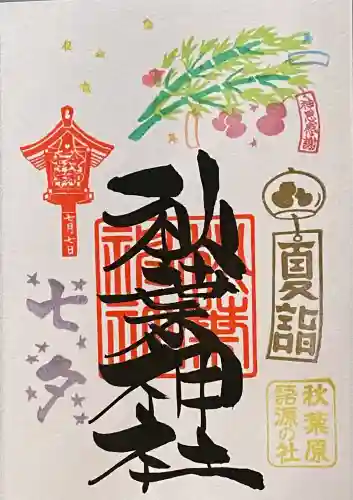 神恩感謝
夏詣
秋葉神社
秋葉神社
七月七日
七夕
秋葉原
語源の社